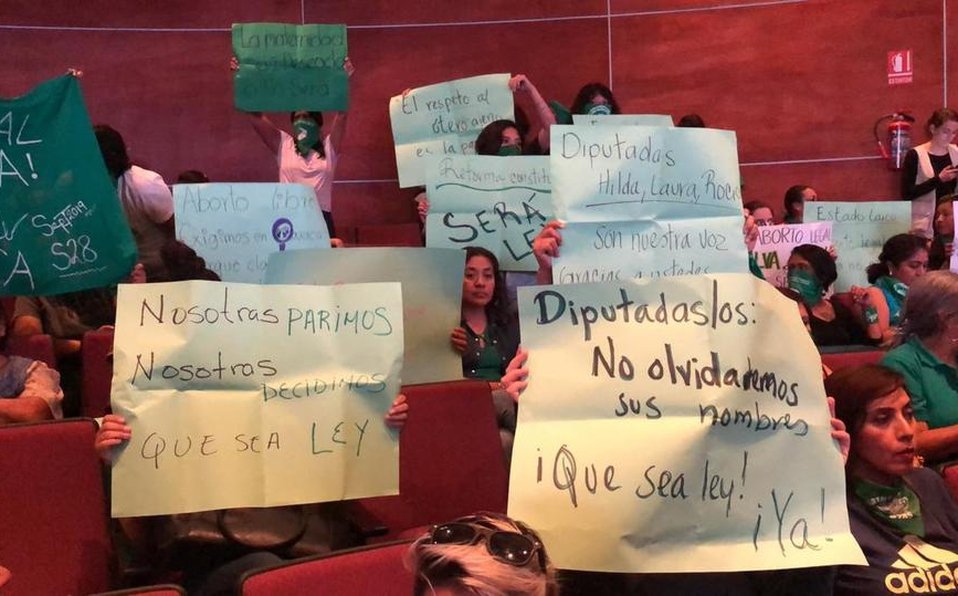 La maternidad
AL
A!
Sept 2019
S28
CA
El respeto al
útero ajeno
es la pa
Reforma constit
SERÁ
LE
Aborto libre
Exigimos en
Porque cla
Diputadas
Hilda, Laura, Rocí
Son nuestra voz
Gracias a ustedes
EXTINTOR
Estado Laico
ABORTO LEGAL
Nosotras PARIMOS
Nosotras
DECIDIMOS
QUE SEA LEY
Diputadas/os:
No olvidaremos
sus nombres
¡Que sea ley!
¡Ya!
adidas